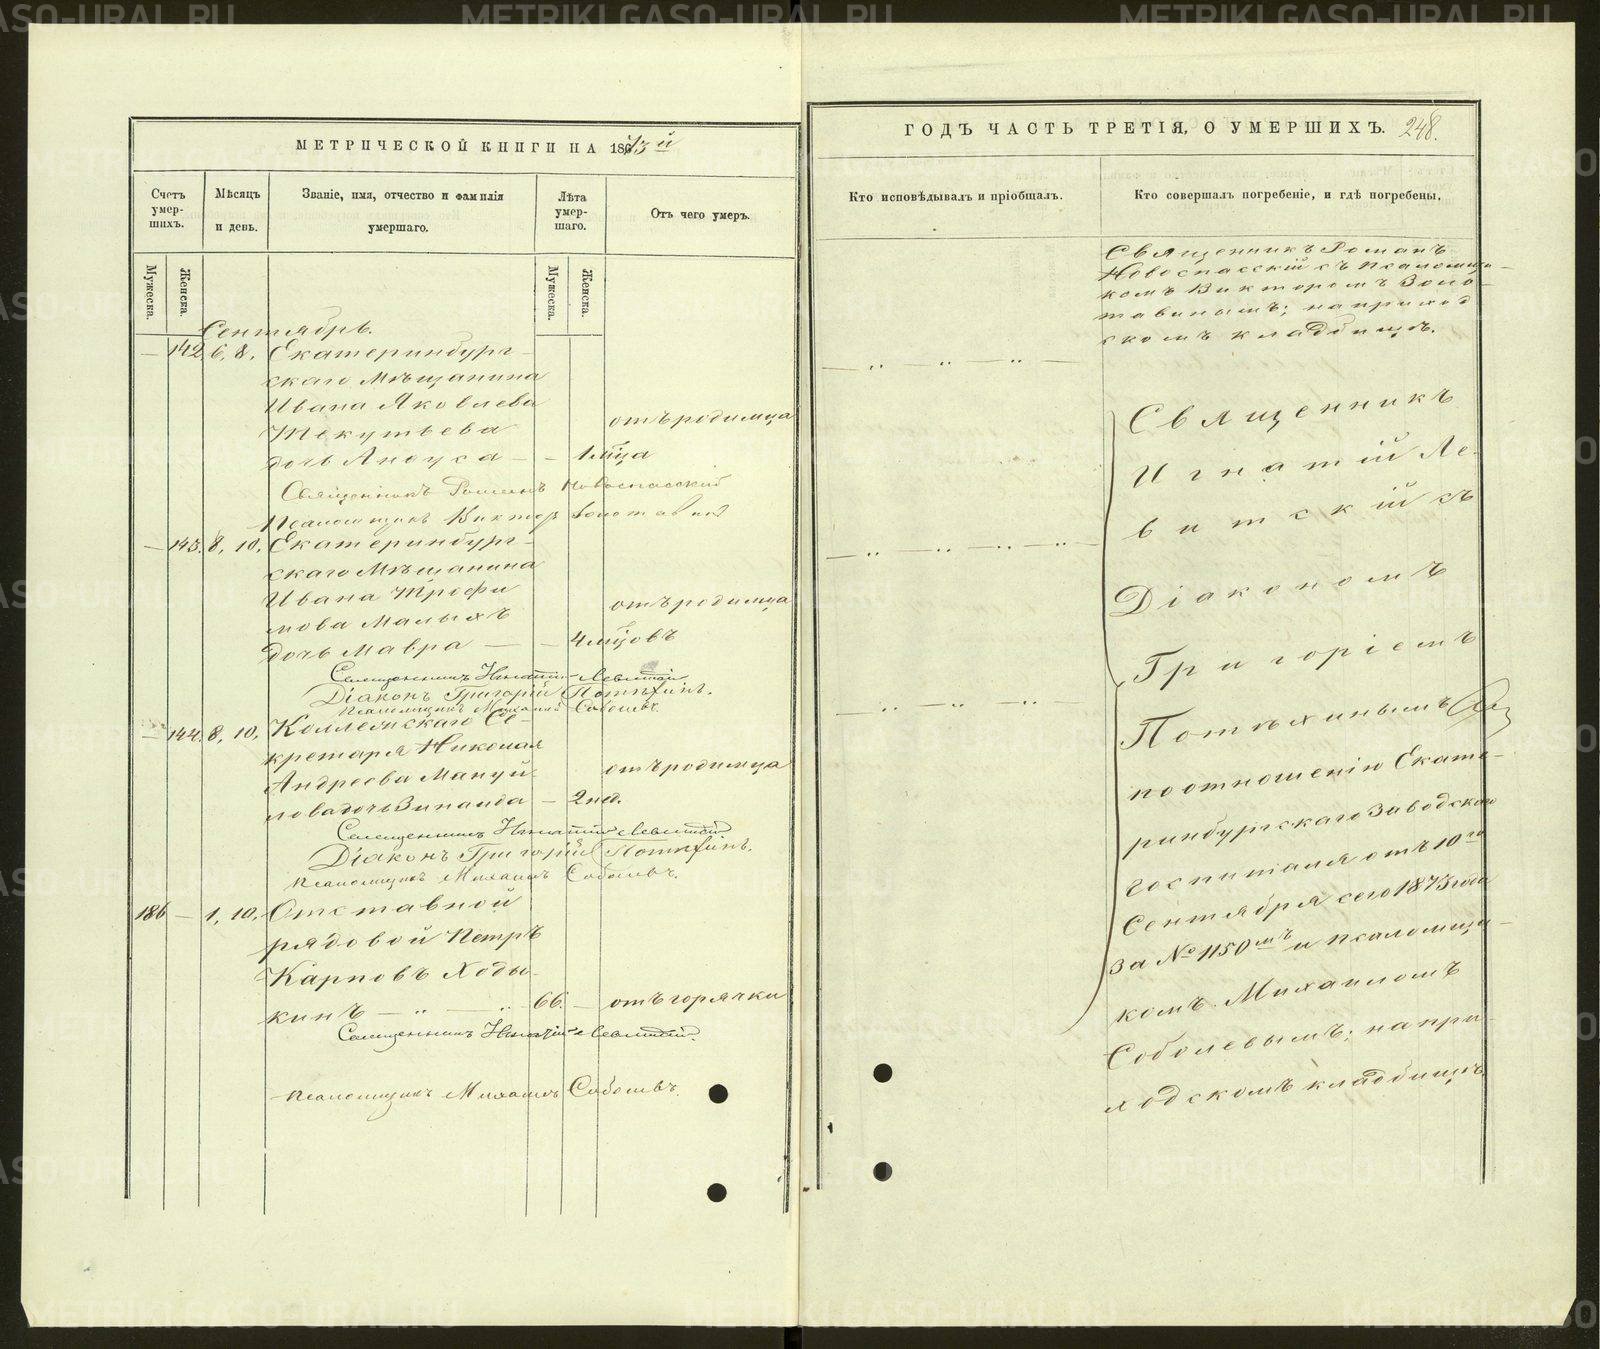 МЕТРИЧЕСКОЙ КНИГИ НА 1873й
Счетъ умер-шихъ.
Мѣсяцъ и день.
Званіе, имя, отчество и фамилія умершаго.
Лѣта умер-шаго.
Отъ чего умеръ.
Мужеска.
Женска.
Мужеска.
Женска.
Сентябрь.
— 142 6, 8, Екатеринбург-
скаго Мѣщанина
Ивана Яковлева
Текутьева отъ родимца
дочь Ануса — – 1 мца
Священникъ Романъ Новоспасскій
Псаломщикъ Викторъ Золотавинъ
— 143. 8, 10, Екатеринбург-
скаго Мѣщанина
Ивана Трофи
мова Малыхъ отъ родимца
дочь Мавра — – 4 мцовъ
Священникъ Игнатій Левитскій
Діаконъ Григорій Потѣхинъ.
Псаломщикъ Михаилъ Соболевъ.
— 144. 8, 10, Коллежскаго Се-
кретаря Николая
Андреева Мануй- отъ родимца
лова дочь Зинаида – 2 нед.
Священникъ Игнатій Левитскій
Діаконъ Григорій Потѣхинъ.
Псаломщикъ Михаилъ Соболевъ.
186 — 1, 10, Отставной
рядовой Петръ
Карповъ Ходы-
кинъ — „ — „ 66. – отъ горячки
Священникъ Игнатій Левитскій
Псаломщикъ Михаилъ Соболевъ.
ГОДЪ ЧАСТЬ ТРЕТІЯ, О УМЕРШИХЪ. 248.
Кто исповѣдывалъ и пріобщалъ.
Кто совершалъ погребеніе, и гдѣ погребены.
Священникъ Романъ
Новоспасскій съ псаломщи-
комъ Викторомъ Золо-
тавинымъ; на приход
скомъ кладбищѣ.
— „ — „ —
Священникъ
Игнатій Ле-
витскій съ
— „ — „ — „ —
Діакономъ
Григоріемъ
— „ — „ — „ —
Потѣхинымъ
по отношенію Екате-
ринбургскаго Заводскаго
госпиталя отъ 10го
Сентября сего 1873 года
за № 1150мъ и псаломщи-
комъ Михаиломъ
Соболевымъ; на при-
ходскомъ кладбищѣ.
METRIKI.GASO-URAL.RU